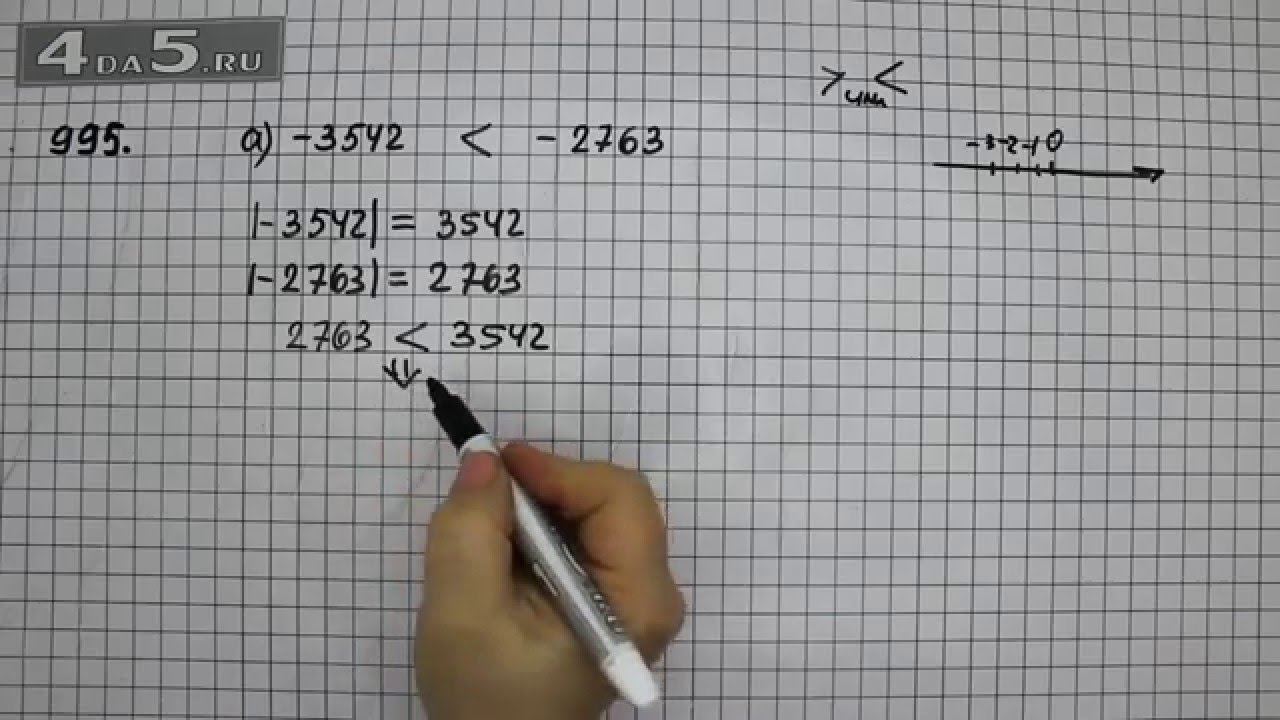 4DA5.RU
> или <
995. а) -3542 < -2763
-3 -2 -1 0
|-3542| = 3542
|-2763| = 2763
2763 < 3542
⇓